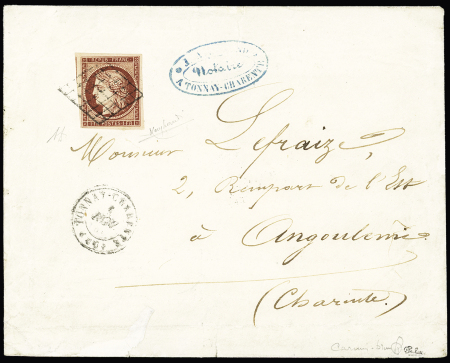 REPUB. FRANC.
Notaire
A TONNAY-CHARENTE
Monsieur Lefraize,
2, Rempart de l'Est
à Angoulême
(Charente)
TONNAY-CHARENTE